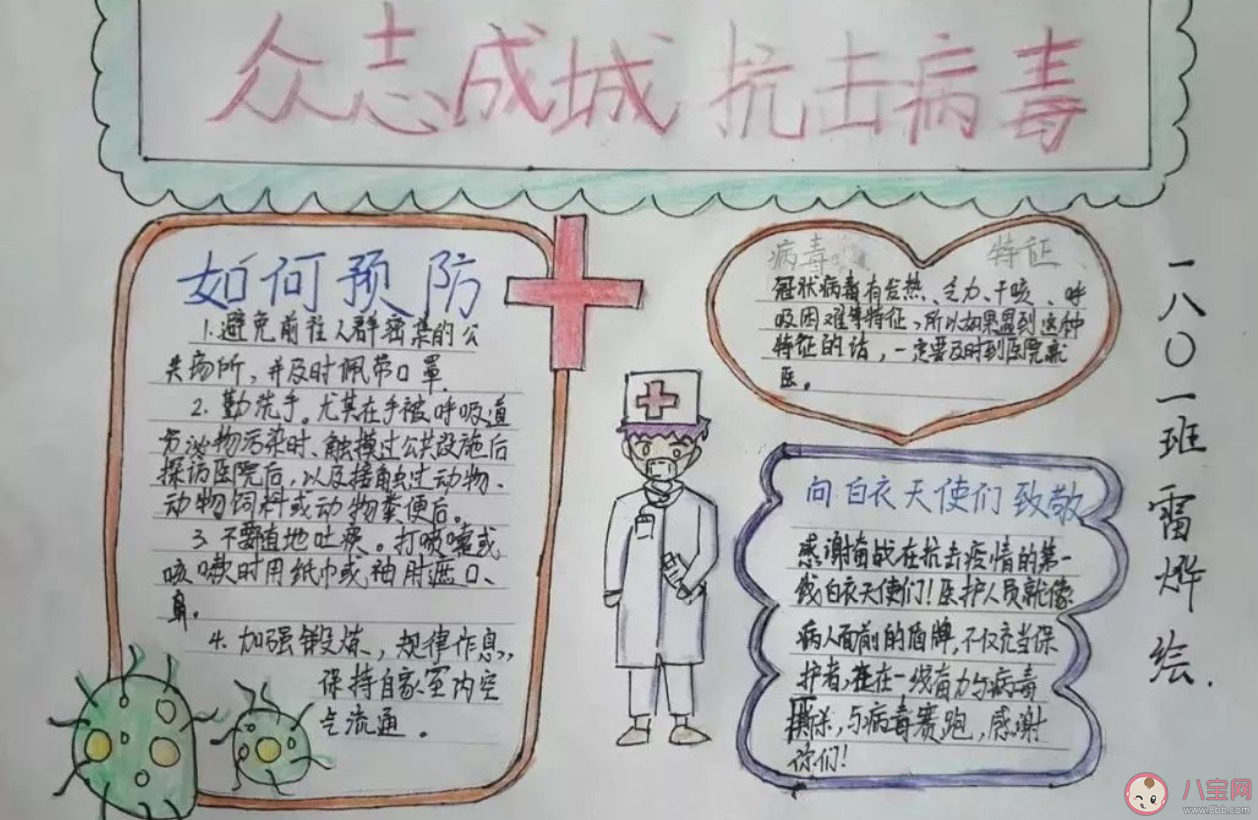 众志成城 抗击病毒
如何预防
1.避免前往人群密集的公
共场所，并及时佩带口罩.
2.勤洗手。尤其在手被呼吸道
分泌物污染时、触摸过公共设施后
探访医院后，以及接触过动物、
动物饲料或动物粪便后。
3.不要随地吐痰。打喷嚏或
咳嗽时用纸巾或袖肘遮口、
鼻。
4.加强锻炼，规律作息，
保持自家室内空
气流通。
病毒 特征
冠状病毒有发热、乏力、干咳、呼
吸困难等特征，所以如果遇到这种
特征的话，一定要及时到医院就
医。
向白衣天使们致敬
感谢奋战在抗击疫情的第一
线白衣天使们！医护人员就像
病人面前的盾牌，不仅充当保
护者，在一线奋力与病毒
厮杀，与病毒赛跑，感谢
你们！
一八〇一班 雷烨 绘.
八宝网
www.8bb.com